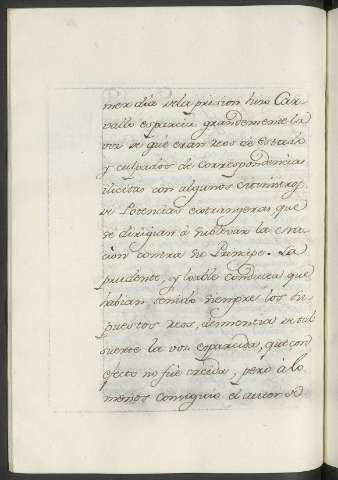 mer dia de la prision hizo Car-
vallo esparcir grandemente la
voz de que eran Reos de Estado
y culpados de correspondencias
ilicitas con algunos Ministros
de Potencias extranjeras, que
se dirigian à sublevar la Na-
cion contra su Principe. La
prudente, y loable conducta que
habian tenido siempre los su-
puestos reos, desmentia de tal
suerte la voz esparcida, que con
efecto no fuè creida, pero à lo
menos consiguiò el autor de